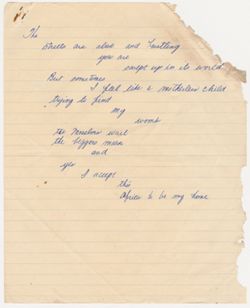 The
streets are alive and bustling
you are
swept up in its world
But sometimes
I feel like a motherless child
trying to find
my
womb
the members wail
the beggars moan
and
yes
I accept
this
Africa to be my home